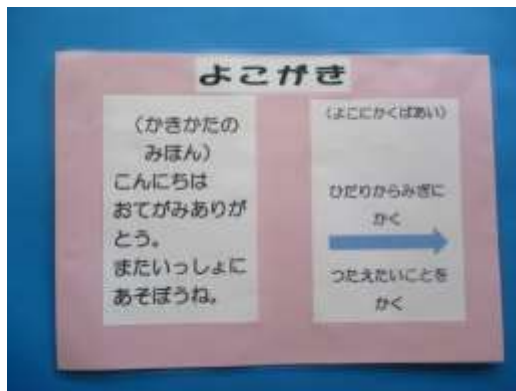 よこがき
（かきかたの
みほん）
こんにちは
おてがみありが
とう。
またいっしょに
あそぼうね。
（よこにかくばあい）
ひだりからみぎに
かく
つたえたいことを
かく